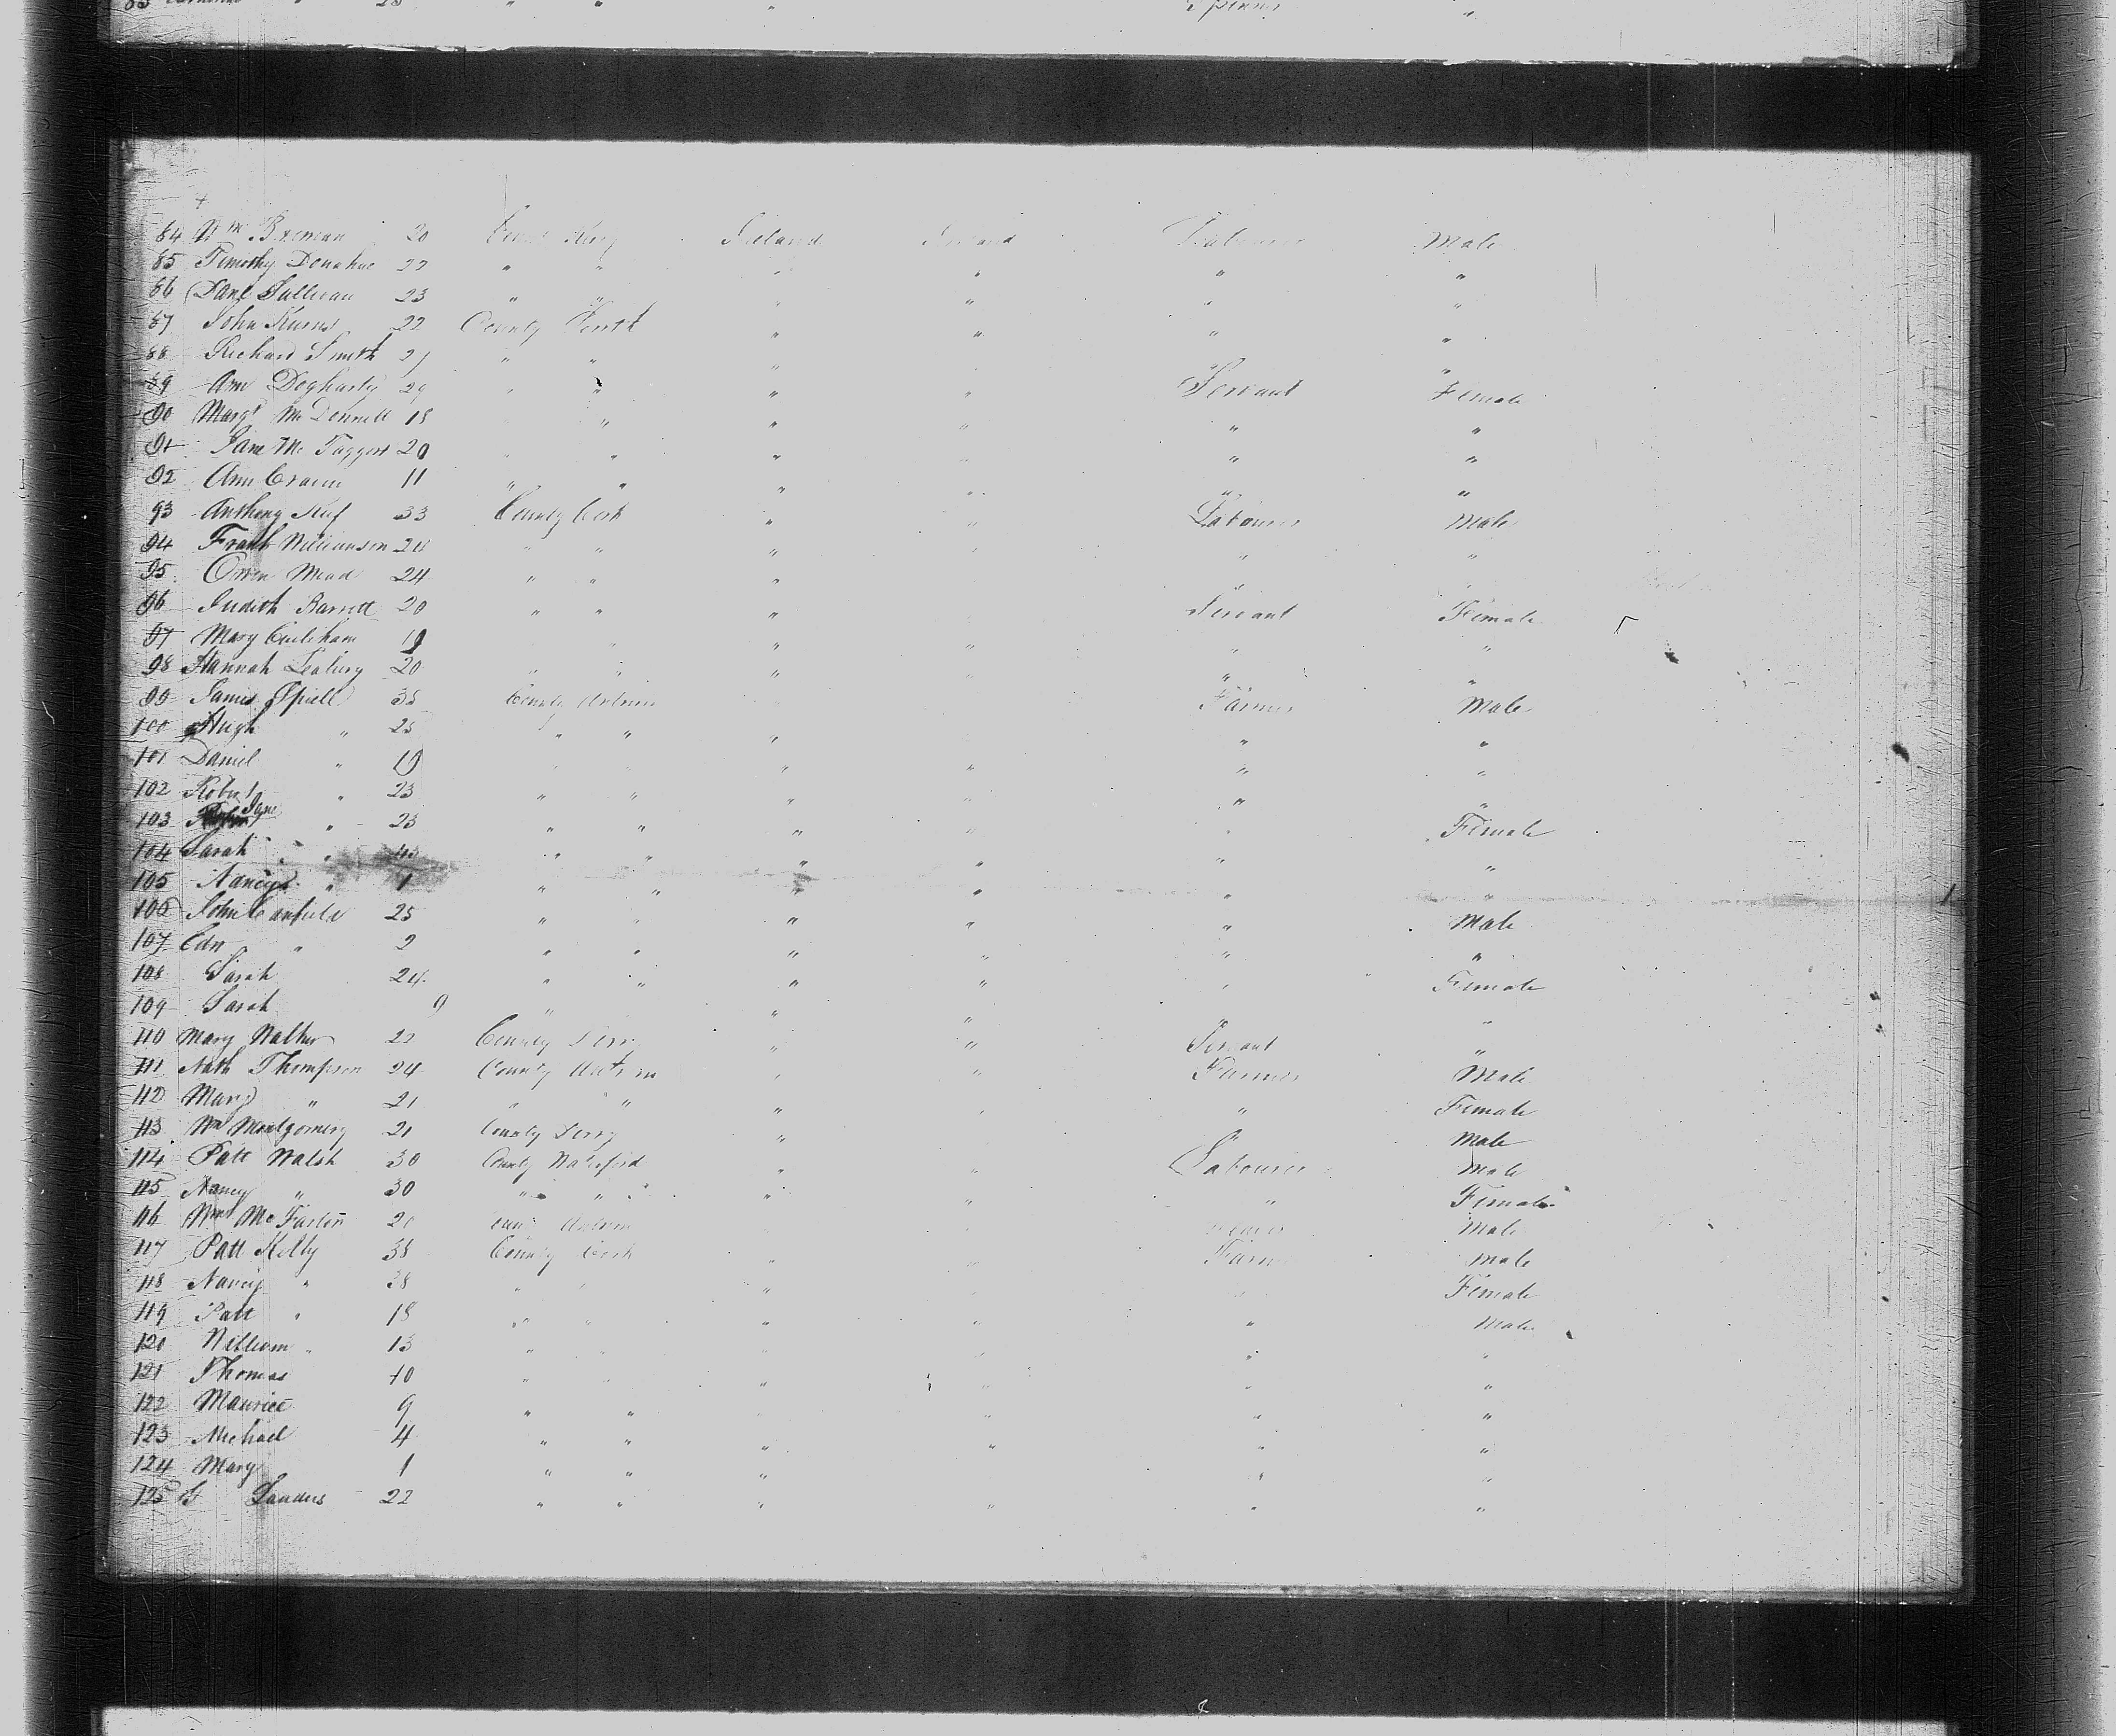 23 " " " Spinner "
84 Wm Brennan 20 County Ireland Ireland Labourer Male
85 Timothy Donahue 22 " " " " " "
86 Danl Sullivan 23 " " " " " "
87 John Kurns 22 County " " " "
88 Richard Smith 21 " " " " " "
89 Ann Dogharty 29 " " " " Servant Female
90 Margt McDonnell 18 " " " " "
91 Jane McTaggert 20 " " " " " "
92 Ann 11 " " " " " "
93 Anthony 33 County Cork " " Labourer Male
94 Frank Williamson 24 " " " " "
95 Owen Mead 24 " " " " "
96 Judith Barrett 20 " " " Servant Female
97 Mary 19 " " " " " "
98 Hannah 20 " " " " " "
99 James Spiell 35 County Antrim " Farmer Male
100 Hugh " 25 " " " " "
101 Daniel " 19 " " " " " "
102 Robert " 23 " " " " " "
103 Jane " 23 " " " " " Female
104 Sarah " 45 " " " " " "
105 Nancy " 1 " " " " " "
106 John Canfield 25 " " " " " Male
107 Edn " 2 " " " " " "
108 Sarah 24 " " " " " Female
109 Sarah 9 " " " " "
110 Mary Walker 22 County Derry " " Servant "
111 Nath Thompson 24 County Antrim " " Farmer Male
112 Mary " 21 " " " " " Female
113 Wm Montgomery 21 County Derry " " Male
114 Patt Walsh 30 County Waterford " " Labourer Male
115 Nancy " 30 " " " " " Female
116 Wm McFarlin 20 Antrim Male
117 Patt Kelly 38 County Cork " " Farmer Male
118 Nancy " 38 " " " " " Female
119 Patt " 18 " " " " " Male
120 William " 13 " " " " " "
121 Thomas 10 " " " " " "
122 Maurice 9 " " " " " "
123 Michael 4 " " " " " "
124 Mary 1 " " " " "
125 Landers 22 " " " " " "